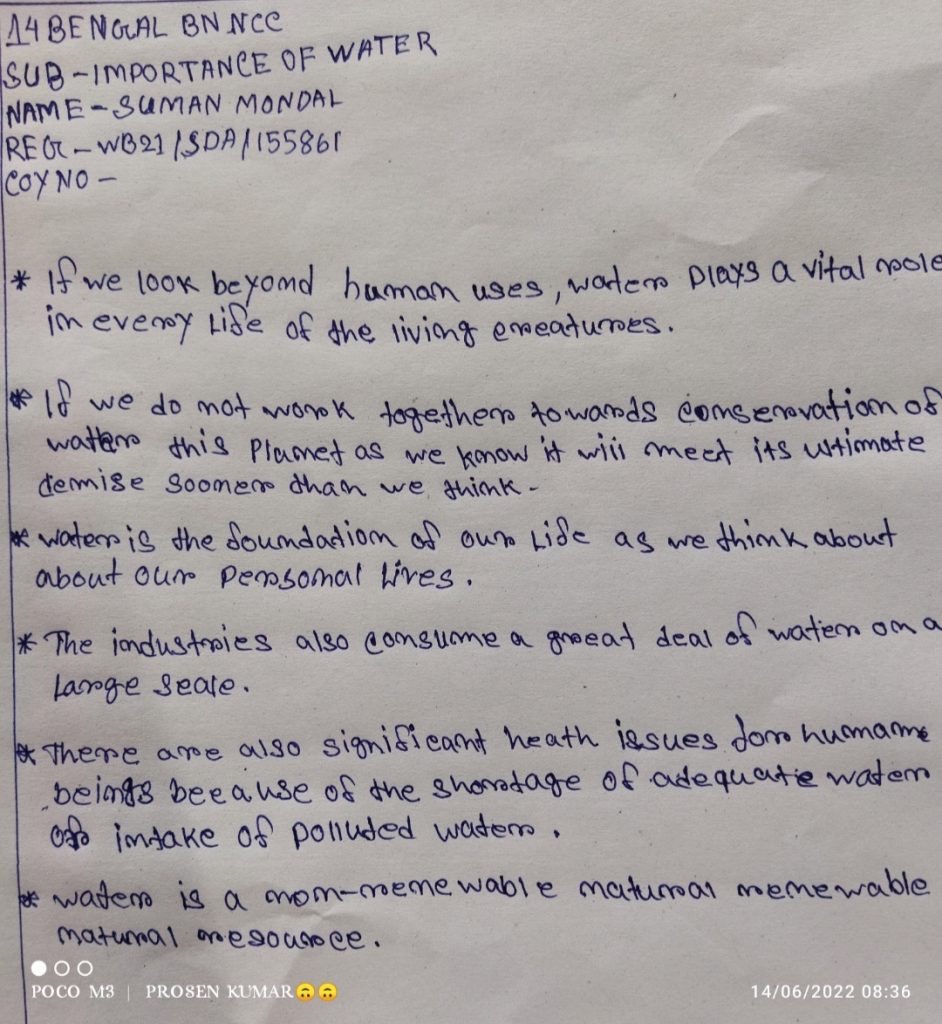 14 BENGAL BN NCC
SUB - IMPORTANCE OF WATER
NAME - SUMAN MONDAL
REG - WB21/SDA/155861
COY NO -
* If we look beyond human uses, water plays a vital role
in every life of the living creatures.
* If we do not work together towards conservation of
water this planet as we know it will meet its ultimate
demise sooner than we think -
* water is the foundation of our life as we think about
about our personal lives.
* The industries also consume a great deal of water on a
large scale.
* There are also significant heath issues for humane
beings because of the shortage of adequate water
or intake of polluted water.
* water is a non-renewable natural renewable
natural resource.
POCO M3 | PROSEN KUMAR🙃🙃
14/06/2022 08:36